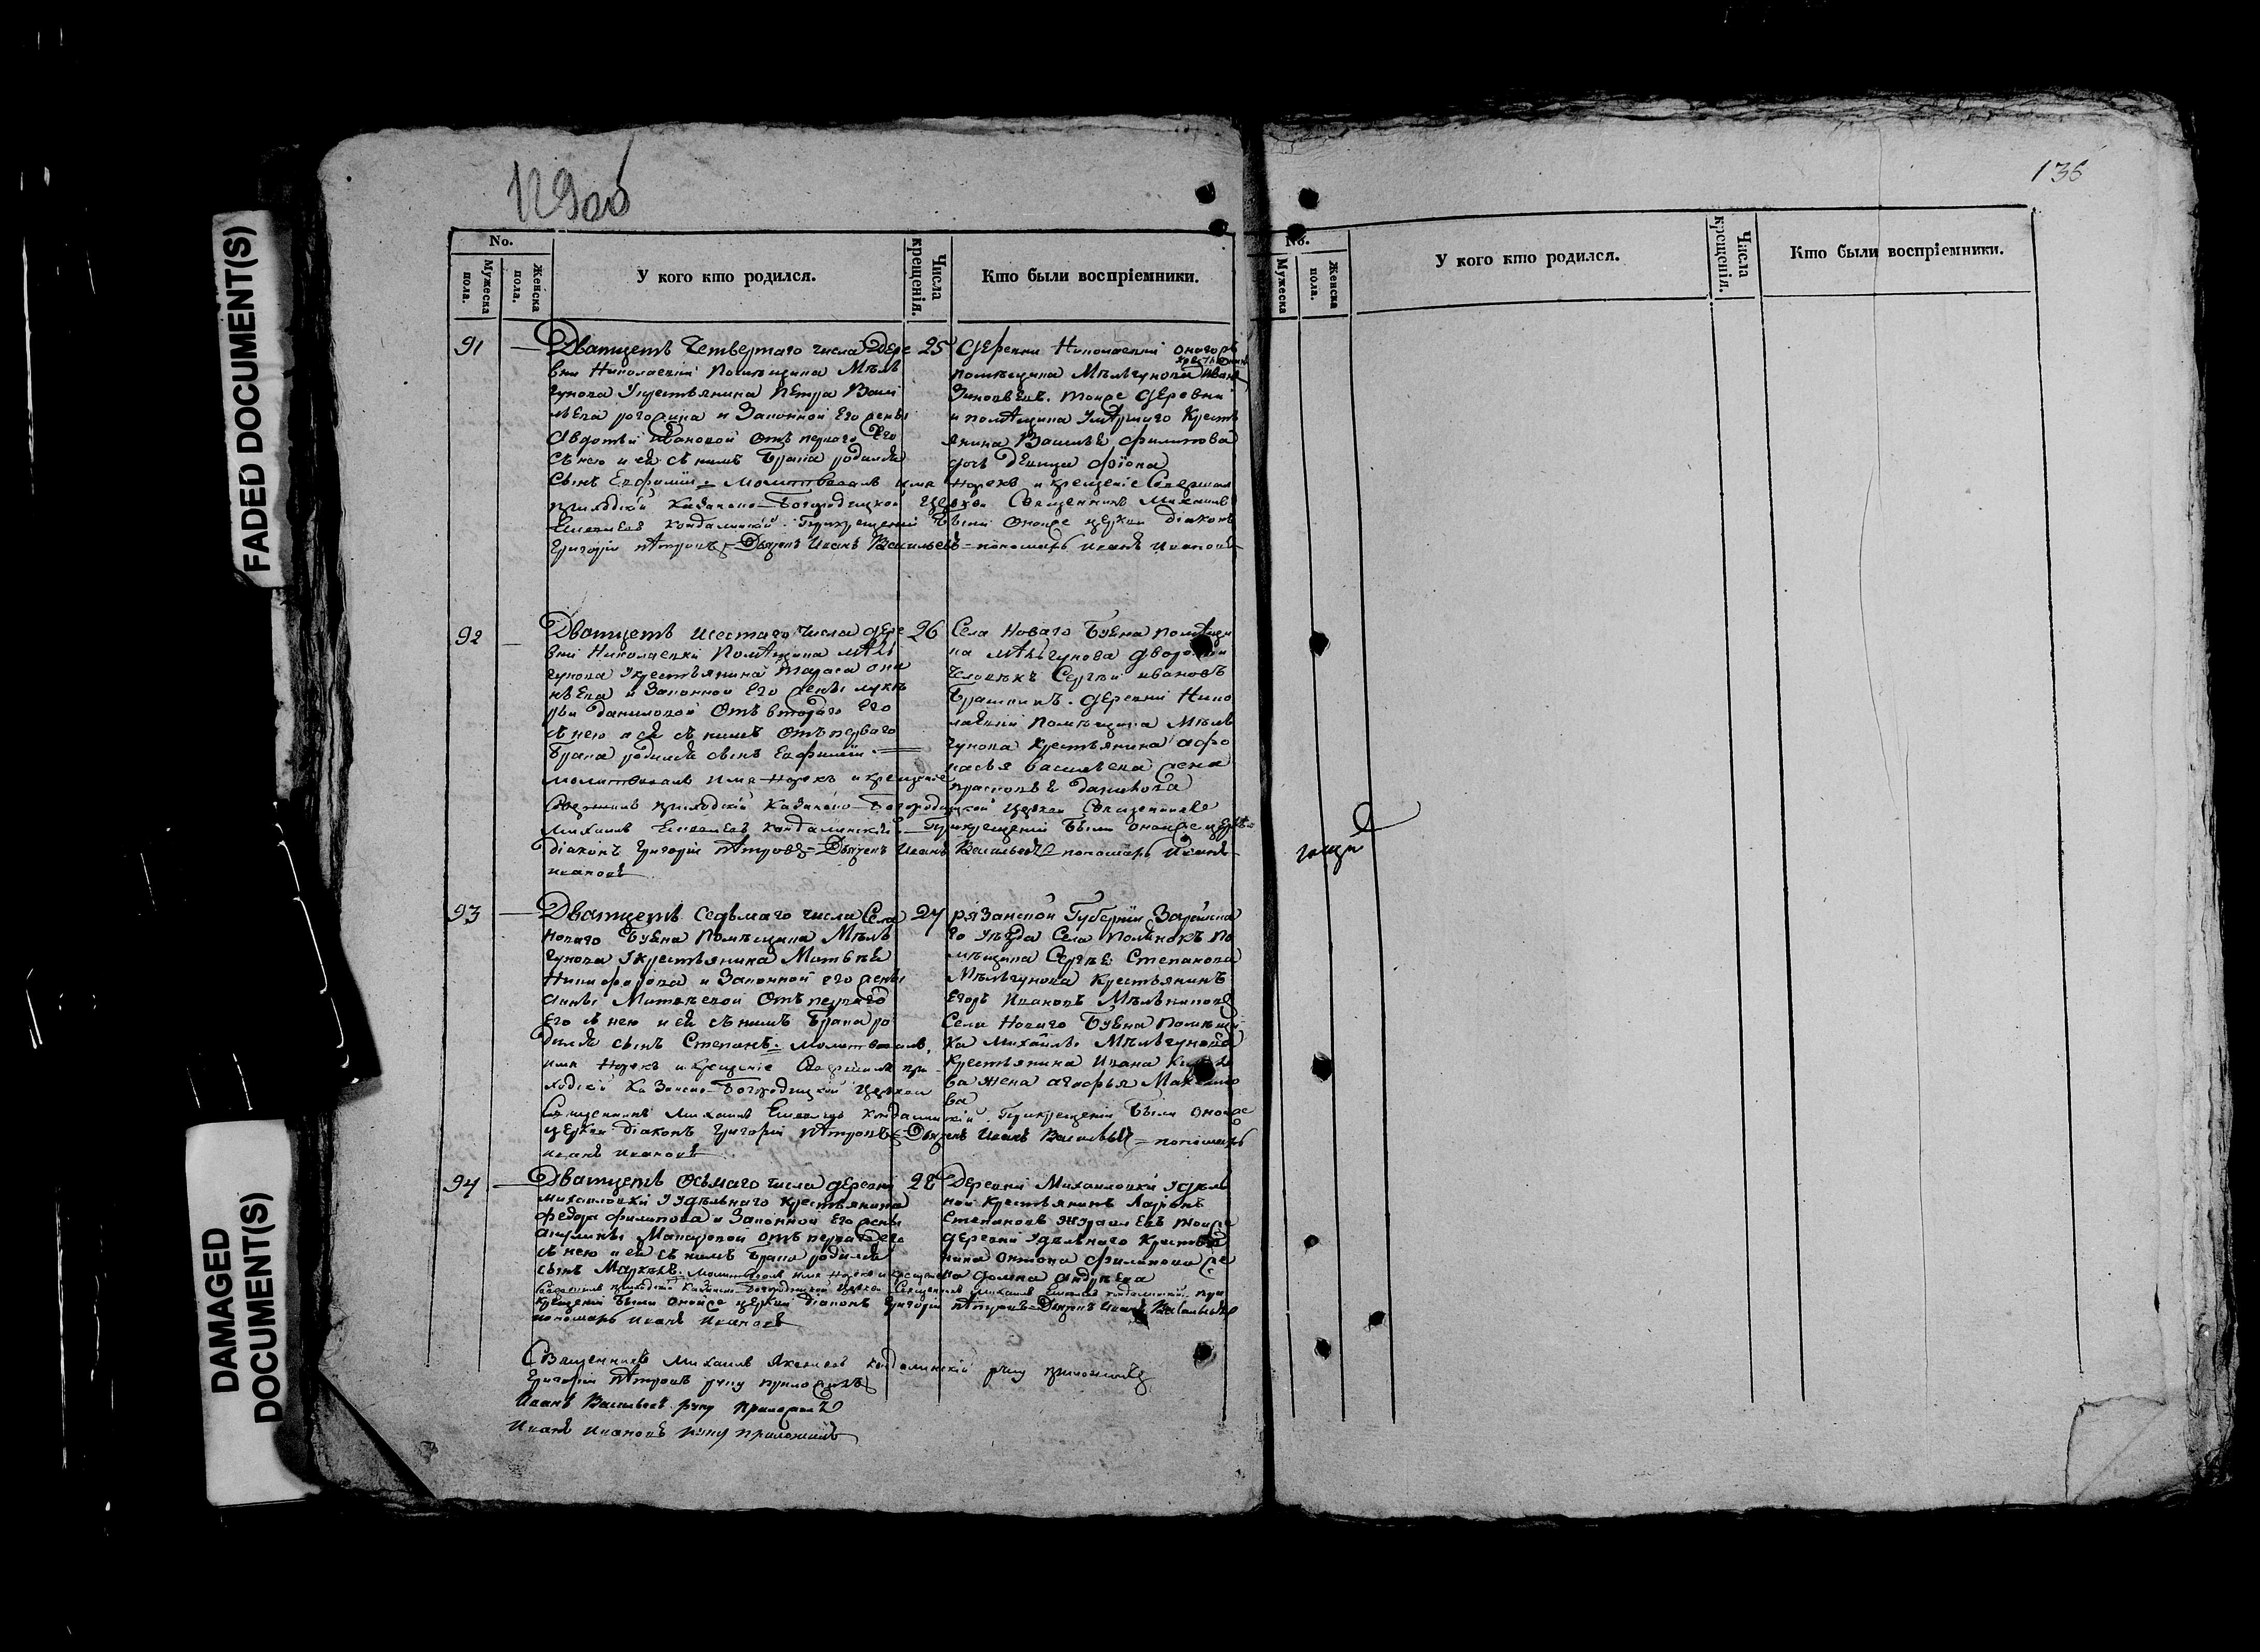 FADED DOCUMENT(S)
DAMAGED DOCUMENT(S)
129об
No.
Мужеска пола.
Женска пола.
У кого кто родился.
Числа крещенія.
Кто были воспріемники.
91
Дватцеть Четвертаго числа Дере
вни Николаевки Помѣщика Мѣль
гунова Укрестьянина Петра Васи
льева и Законной Его жены
Авдотьи Ивановой Отъ перваго Его
Съ нею и ея съ нимъ брака родился
Сынъ Евфимий. Молитвовалъ имя Нарекъ и крещеніе Совершилъ
приходскій Казанско-Богородицкой Церкви Священникъ Михаилъ
Кандалинскій. При крещеніи Были Оной же церкви діаконъ
Григорій Петровъ Дьячекъ Иванъ Васильевъ пономарь Иванъ Ивановъ
25
Деревни Николаевки онаго жъ
помѣщика Мѣльгунова крестьянинъ Иванъ
Зиновьевъ. тойже деревни
и помѣщика Умершаго Кресть
янина Василья Филипова
дочь девица
92
Дватцеть шестаго числа дере
вни Николаевки Помѣщика Мѣль
гунова Укрестьянина Тараса
и Законной Его жены Лукѣ
рьи Даниловой Отъ втораго Его
съ нею а ея съ нимъ Отъ перваго
Брака родился сынъ Евфимий
молитвовалъ Имя Нарекъ и крещеніе
Совершилъ приходскій Казанско-Богородицкой Церкви Священникъ
Михаилъ Кандалинскій При крещеніи Были оной же церкви
діаконъ Григорій Петровъ Дьячекъ Иванъ Васильевъ пономарь Иванъ
Ивановъ
26
Села Новаго Буяна помѣщи
ка Мѣльгунова дворовой
Человѣкъ Сергѣй Ивановъ
Деревни Нико
лаевки Помѣщика Мѣль
гунова Крестьянина Афо
насья Васильева жена
Прасковья Данилова
93
Дватцеть Седьмаго числа Села
Новаго Буяна Помѣщика Мѣль
гунова Укрестьянина Матвѣя
Никифорова и Законной его жены
Анны Матвѣевой Отъ перваго
Его съ нею и ея съ нимъ Брака ро
дился сынъ Степанъ. Молитвовалъ,
имя Нарекъ и Крещеніе Совершилъ при
ходскій Казанско-Богородицкой Церкви
Священникъ Михаилъ Кандалинскій. При крещеніи Были оной же
церкви діаконъ Григорій Петровъ Дьячекъ Иванъ Васильевъ пономарь
Иванъ Ивановъ
27
Рязанской Губерніи Зарайска
го Уѣзда Села По
мѣщика Сергѣя Степанова
Мѣльгунова Крестьянинъ
Егоръ Ивановъ Мѣльниковъ
Села Новаго Буяна Помѣщи
ка Михайлы Мѣльгунова
Крестьянина Ивана
ва жена Агафья Максимо
ва
94
Дватцеть Осьмаго числа деревни
Михаиловки Уудѣльнаго Крестьянина
Федора Филипова и Законной Его жены
Акулины Макаровой отъ перваго его
съ нею и ея съ нимъ Брака родился
сынъ Маркелъ. Молитвовалъ имя Нарекъ и крещеніе
Совершилъ приходскій Казанско-Богородицкой Церкви Священникъ Михаилъ Кандалинскій. При
крещеніи Были Оной же церкви діаконъ Григорій Петровъ Дьячекъ Иванъ Васильевъ
пономарь Иванъ Ивановъ
28
Деревни Михаиловки Удѣль
ной Крестьянинъ Ларіонъ
Степановъ Журавлевъ тойже
деревни Удѣльнаго Крестья
нина Антона Филипова же
на Домна Андрѣева
Священникъ Михаилъ Кандалинскій руку приложилъ
Григорій Петровъ руку приложилъ
Иванъ Васильевъ руку Приложилъ
Иванъ Ивановъ руку приложилъ
136
No.
Мужеска
Женска пола.
У кого кто родился.
Числа крещенія.
Кто были воспріемники.